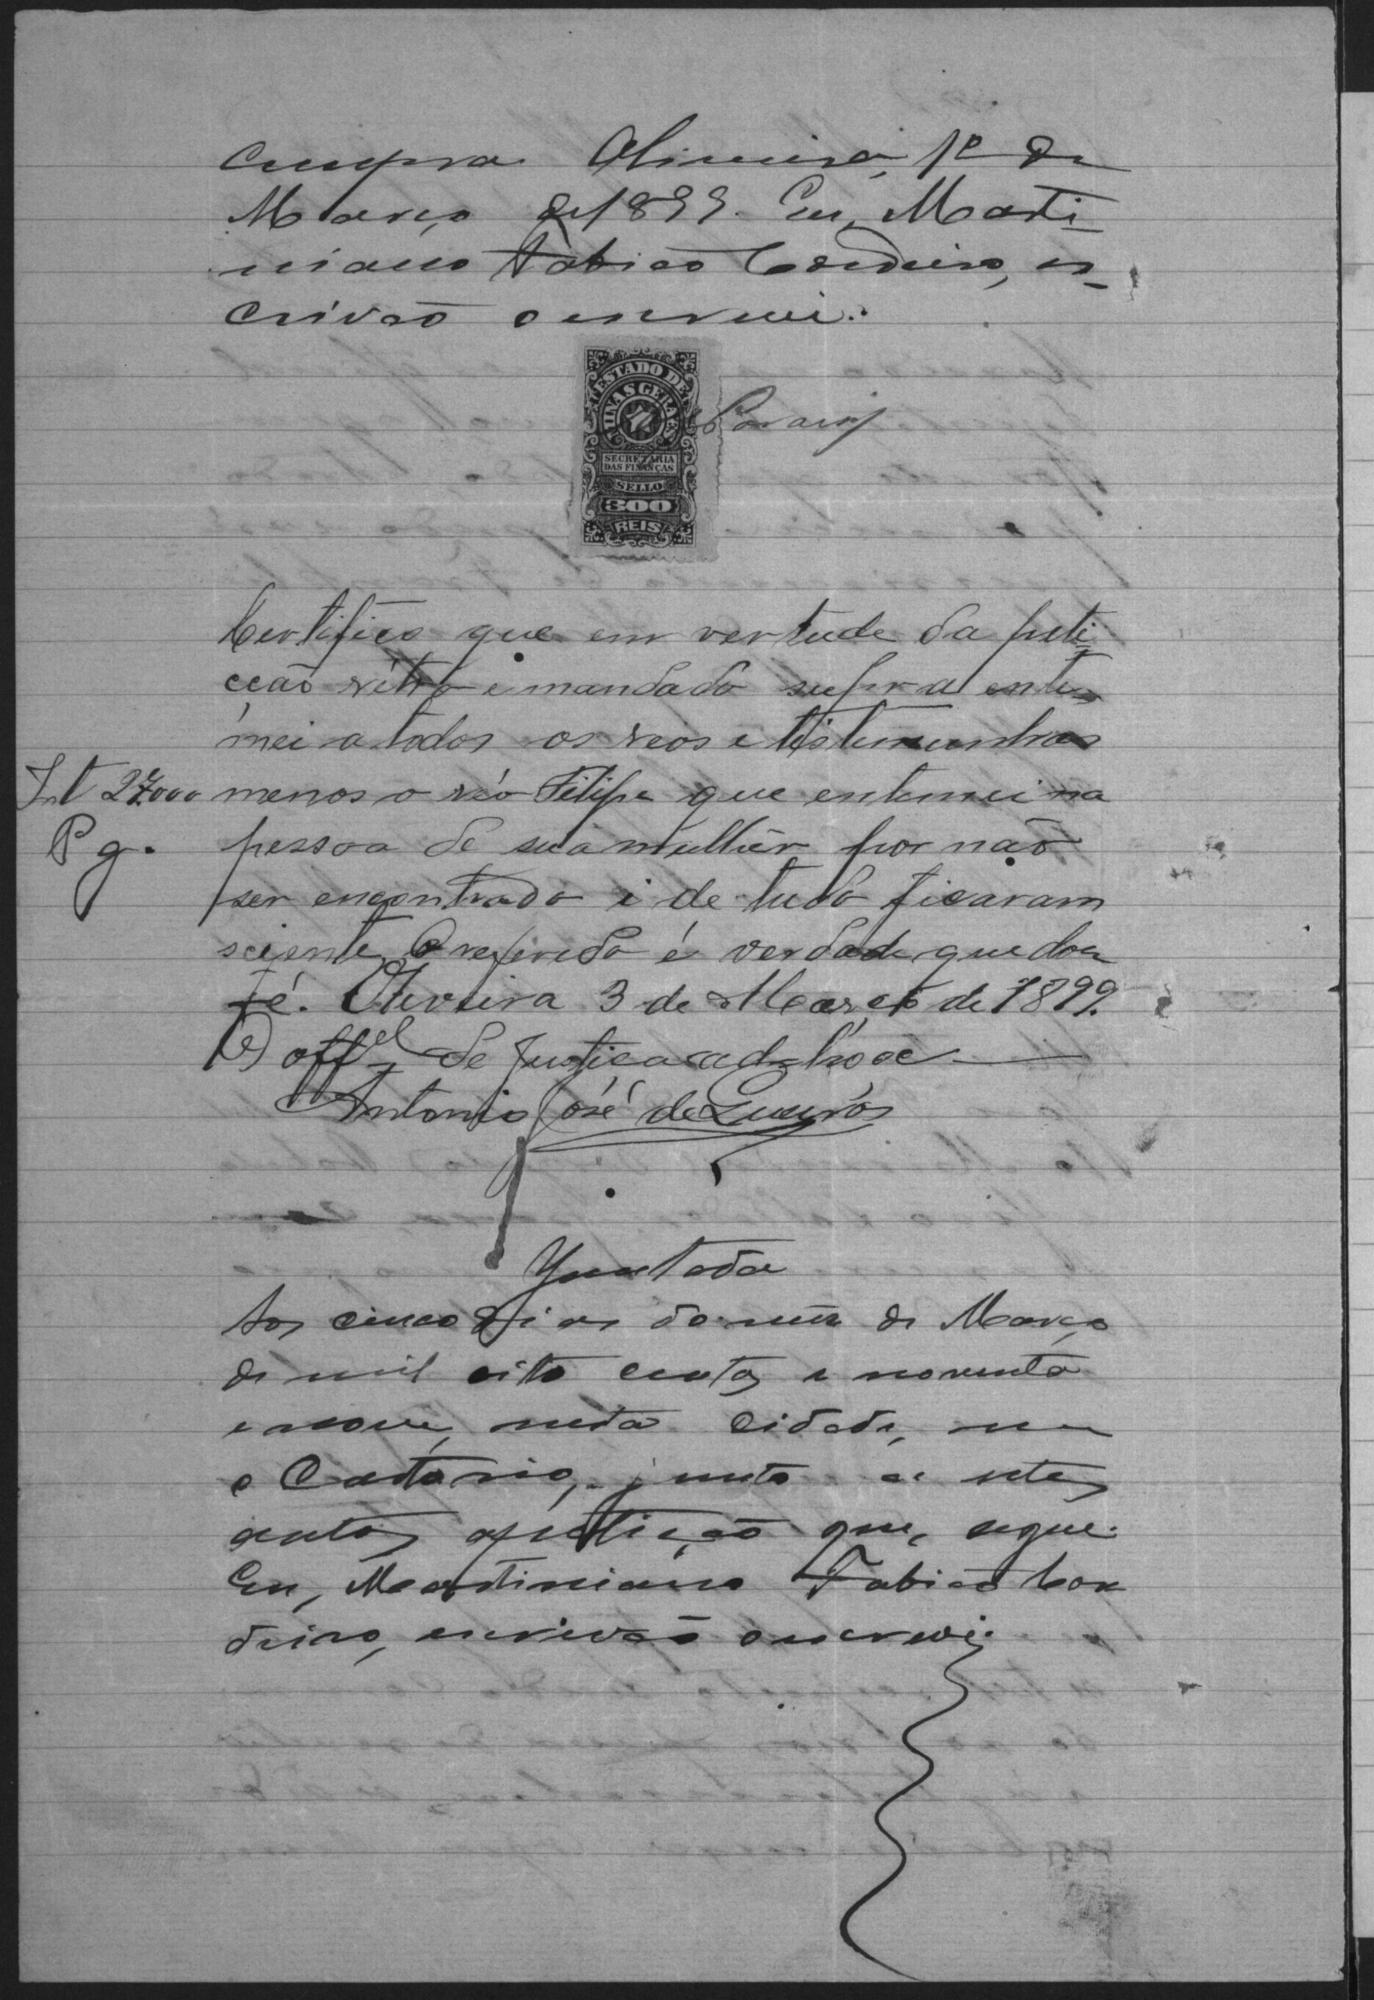 cumpra. Oliveira, 1º de
Março de 1899. Eu, Marti-
niano Fabião Cordeiro, es-
crivão o escrevi.
ESTADO DE
MINAS GERAES
SECRETARIA
DAS FINANÇAS
SELLO
300
REIS
Certifico que em vertude da peti-
cção retro e mandado supra ente-
mei a todos os reos e testemunhas
Int 27000 menos o réo Filipe que entemei na
Pg. pessoa de sua mulhér por não
ser encontrado i de tudo ficaram
sciente, O referido é verdade que dou
fé. Oliveira 3 de Março de 1899.
O offel de Justiça ad hoc
Antonio José de Queirós
Juntada
Aos cinco dias do mez de Março
de mil oito centos e noventa
e nove, nesta cidade, em
o Cartorio, junto a estes
autos a petição que segue.
Eu, Martiniano Fabião Cor
deiro, escrivão o escrevi.